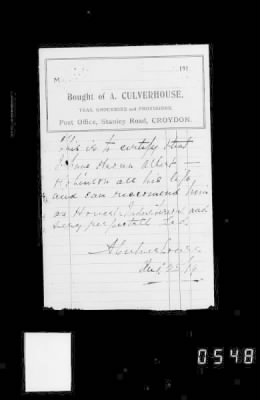 M 191
Bought of A. CULVERHOUSE,
TEAS, GROCERIES and PROVISIONS,
Post Office, Stanley Road, CROYDON.
This is to certify that
I have known Albert
Robinson all his life
and can recommend him
as Honest, and
very respectable
A Culverhouse
0548